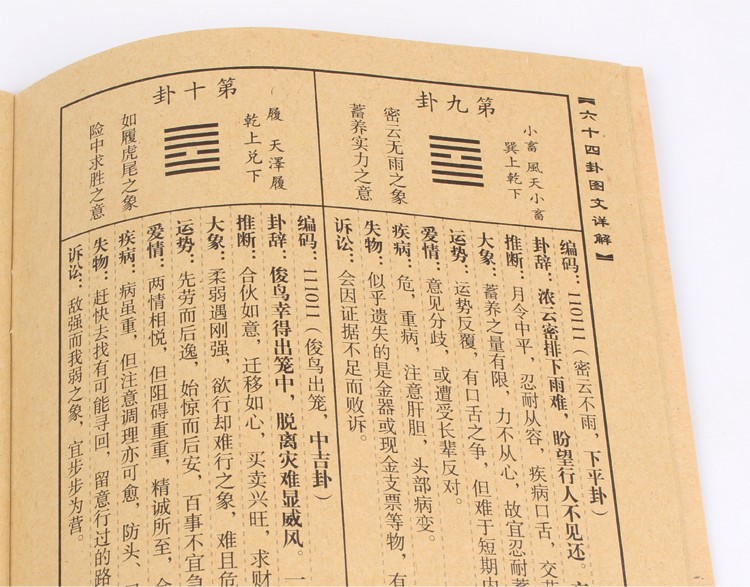 【六十四卦图文详解】
第九卦
小畜 風天小畜
巽上乾下
密云无雨之象
蓄养实力之意
编码：110111（密云不雨，下平卦）
卦辞：浓云密排下雨难，盼望行人不见还。
推断：月令中平，忍耐从容，疾病口舌，交
大象：蓄养之量有限，力不从心，故宜忍耐蓄
运势：运势反覆，有口舌之争，但难于短期内
爱情：意见分歧，或遭受长辈反对。
疾病：危，重病，注意肝胆，头部病变。
失物：似乎遗失的是金器或现金支票等物，有
诉讼：会因证据不足而败诉。
第十卦
履 天泽履
乾上兑下
如履虎尾之象
险中求胜之意
编码：111011（俊鸟出笼，中吉卦）
卦辞：俊鸟幸得出笼中，脱离灾难显威风。一
推断：合伙如意，迁移如心，买卖兴旺，求财
大象：柔弱遇刚强，欲行却难行之象，难且危
运势：先劳而后逸，始惊而后安，百事不宜急
爱情：两情相悦，但阻碍重重，精诚所至，
疾病：病虽重，但注意调理亦可愈，防头、
失物：赶快去找有可能寻回，留意行过的路
诉讼：敌强而我弱之象，宜步步为营。